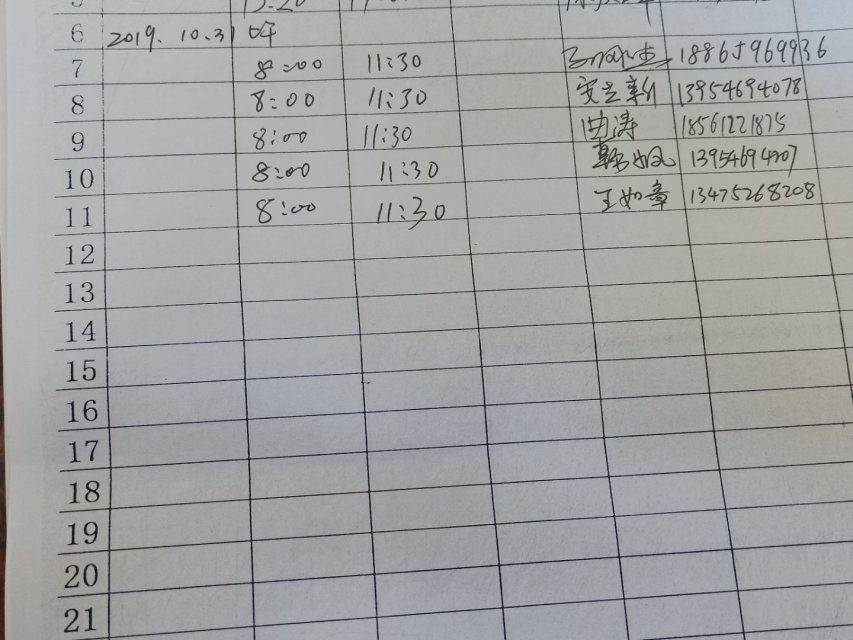 6 2019.10.31
7 8:00 11:30 18865969936
8 8:00 11:30 安立新 13954694078
9 8:00 11:30 曲涛 18561221875
10 8:00 11:30
11 8:00 11:30 王如章 13475268208
12
13
14
15
16
17
18
19
20
21